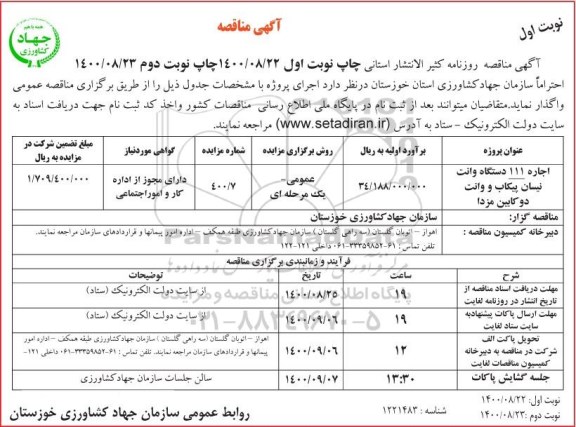 آگهی مناقصه
نوبت اول
همه با هم
جهاد
کشاورزی
آگهی مناقصه روزنامه کثیر الانتشار استانی چاپ نوبت اول ۱۴۰۰/۰۸/۲۲چاپ نوبت دوم ۱۴۰۰/۰۸/۲۳
احتراماً سازمان جهادکشاورزی استان خوزستان درنظر دارد اجرای پروژه با مشخصات جدول ذیل را از طریق برگزاری مناقصه عمومی
واگذار نماید.متقاضیان میتوانند بعد از ثبت نام در پایگاه ملی اطلاع رسانی مناقصات کشور واخذ کد ثبت نام جهت دریافت اسناد به
سایت دولت الکترونیک - ستاد به آدرس (www.setadiran.ir) مراجعه نمایند.
عنوان پروژه برآورد اولیه به ریال روش برگزاری مزایده شماره مزایده گواهی موردنیاز مبلغ تضمین شرکت در
مزایده به ریال
اجاره ۱۱۱ دستگاه وانت
نیسان پیکاب و وانت
دوکابین مزدا
۳۴/۱۸۸/۰۰۰/۰۰۰
عمومی-
یک مرحله ای
۴۰۰/۷
دارای مجوز از اداره
کار و اموراجتماعی
۱/۷۰۹/۴۰۰/۰۰۰
مناقصه گزار: سازمان جهادکشاورزی خوزستان
دبیرخانه کمیسیون مناقصه : اهواز - اتوبان گلستان (سه راهی گلستان ) سازمان جهادکشاورزی طبقه همکف - اداره امور پیمانها و قراردادهای سازمان مراجعه نمایند.
تلفن تماس : ۶۱-۳۳۳۵۹۸۵۲-۰۶۱ داخلی ۱۲۱-۱۲۲
فرآیند و زمانبندی برگزاری مناقصه
شرح ساعت تاریخ توضیحات
مهلت دریافت اسناد مناقصه از
تاریخ انتشار در روزنامه لغایت
۱۹ ۱۴۰۰/۰۸/۲۵ از سایت دولت الکترونیک (ستاد)
مهلت ارسال پاکات پیشنهادبه
سایت ستاد لغایت
۱۹ ۱۴۰۰/۰۹/۰۶ از سایت دولت الکترونیک (ستاد)
تحویل پاکت الف
شرکت در مناقصه به دبیرخانه
کمیسیون مناقصات لغایت
۱۲ ۱۴۰۰/۰۹/۰۶
اهواز - اتوبان گلستان (سه راهی گلستان ) سازمان جهادکشاورزی طبقه همکف - اداره امور
پیمانها و قراردادهای سازمان مراجعه نمایند. تلفن تماس : ۶۱-۳۳۳۵۹۸۵۲-۰۶۱ داخلی ۱۲۱-
جلسه گشایش پاکات ۱۳:۳۰ ۱۴۰۰/۰۹/۰۷ سالن جلسات سازمان جهادکشاورزی
نوبت اول: ۱۴۰۰/۰۸/۲۲
نوبت دوم:۱۴۰۰/۰۸/۲۳
شناسه : ۱۲۲۱۴۸۳
روابط عمومی سازمان جهاد کشاورزی خوزستان
پایگاه اطلاع رسانی مناقصه و مزایده
۰۲۱-۸۸۳۴۹۶۷۰-۵